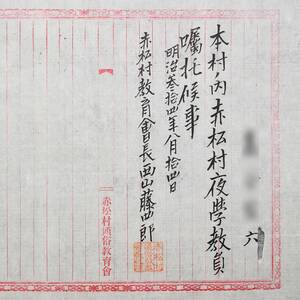 六
本村ノ内赤松村夜學教員
囑托候事
明治叄拾四年八月拾四日
赤松村教育會長西山藤四郎
赤松村通俗教育會